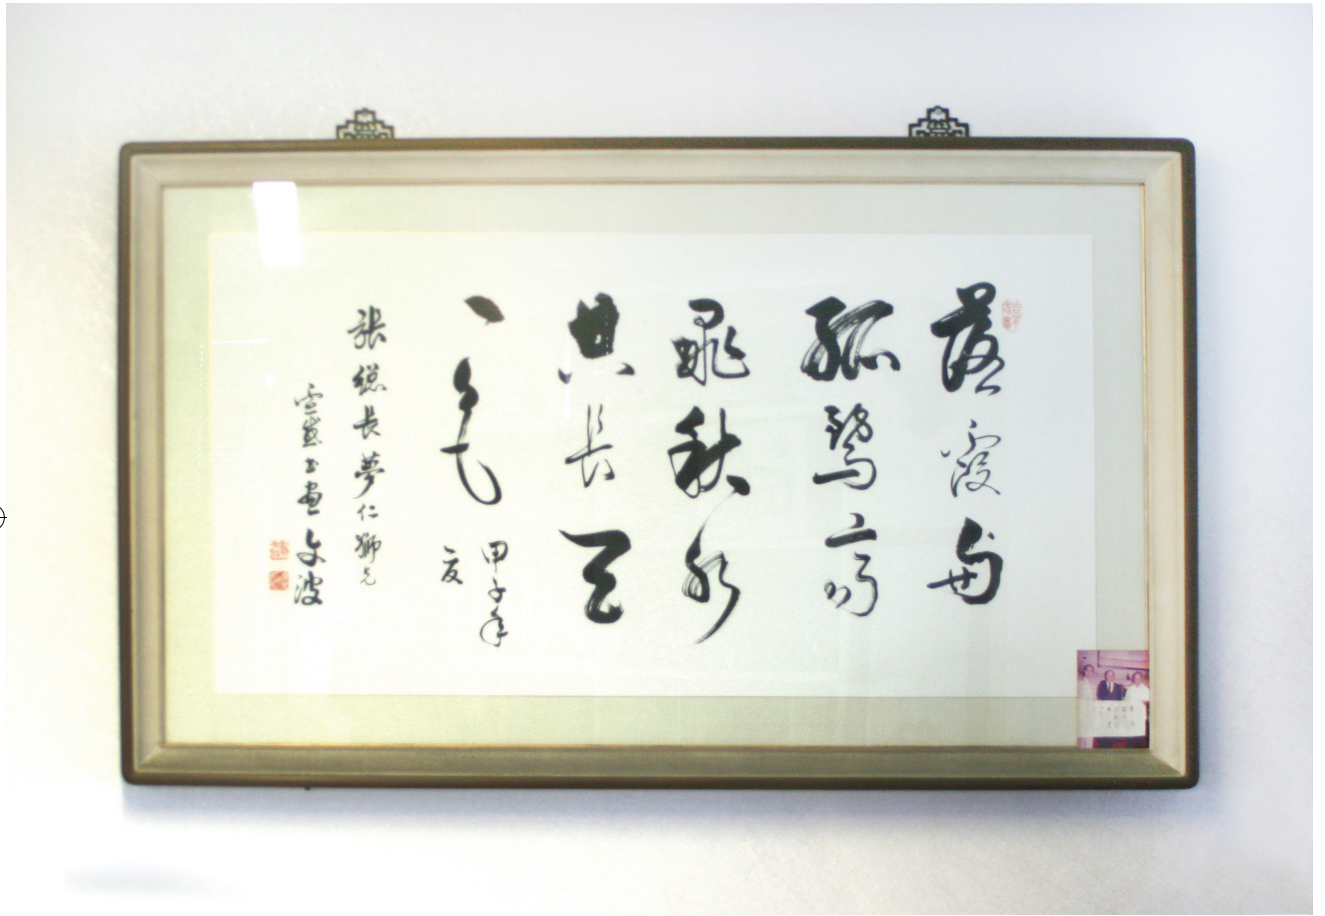 落霞與
孤鶩齊
飛秋水
共長天
一色
甲子年
夏
張總長夢仁獅兄
書畫文波